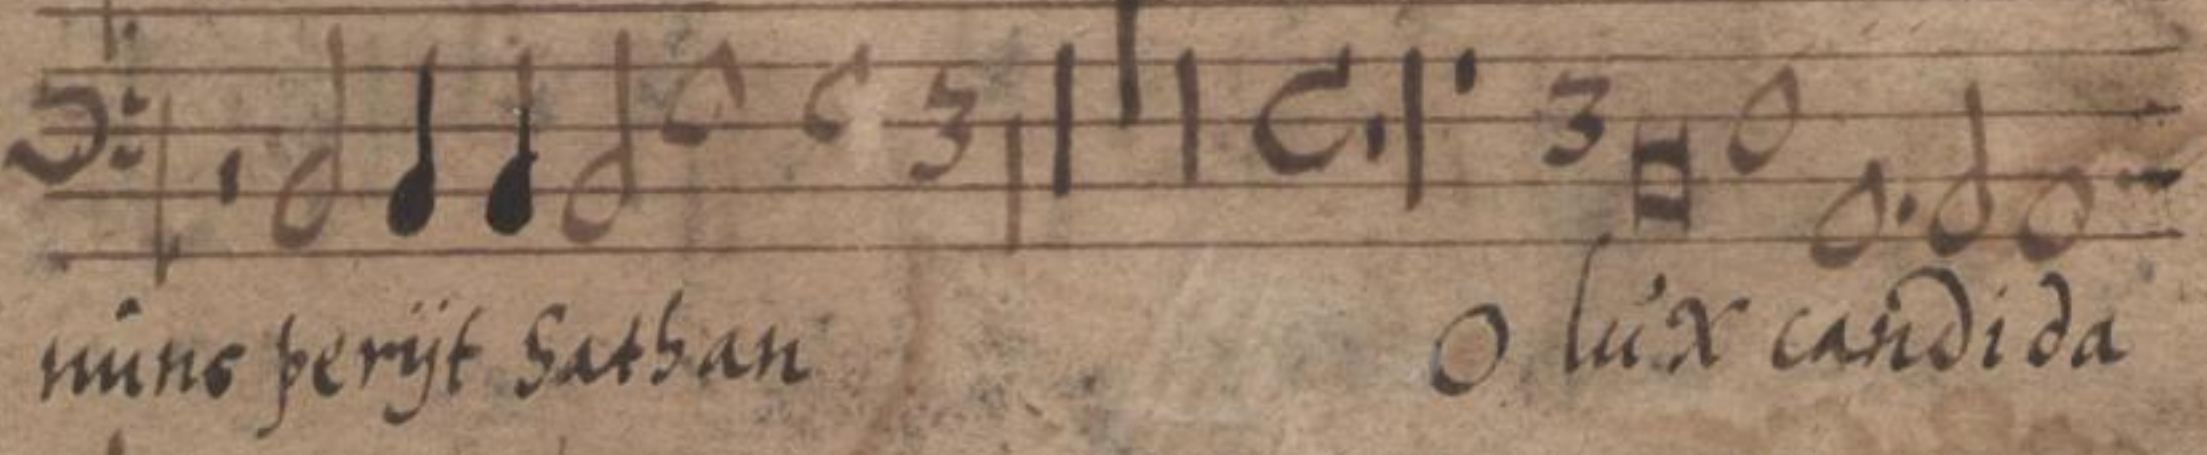 nûnc perijt Sathan O lúx candida